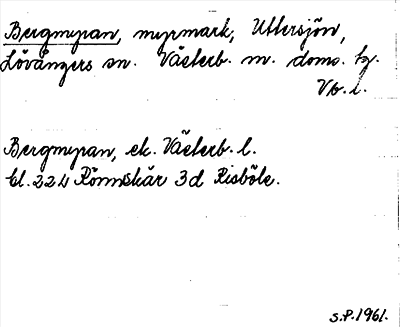 Bergmyran, myrmark, Uttersjön,
Lövångers sn. Västerb. m. doms. tg.
Vb. l.
Bergmyran, ek. Västerb. l.
bl. 224 Rönnskär 3d Risböle.
S.P. 1961.